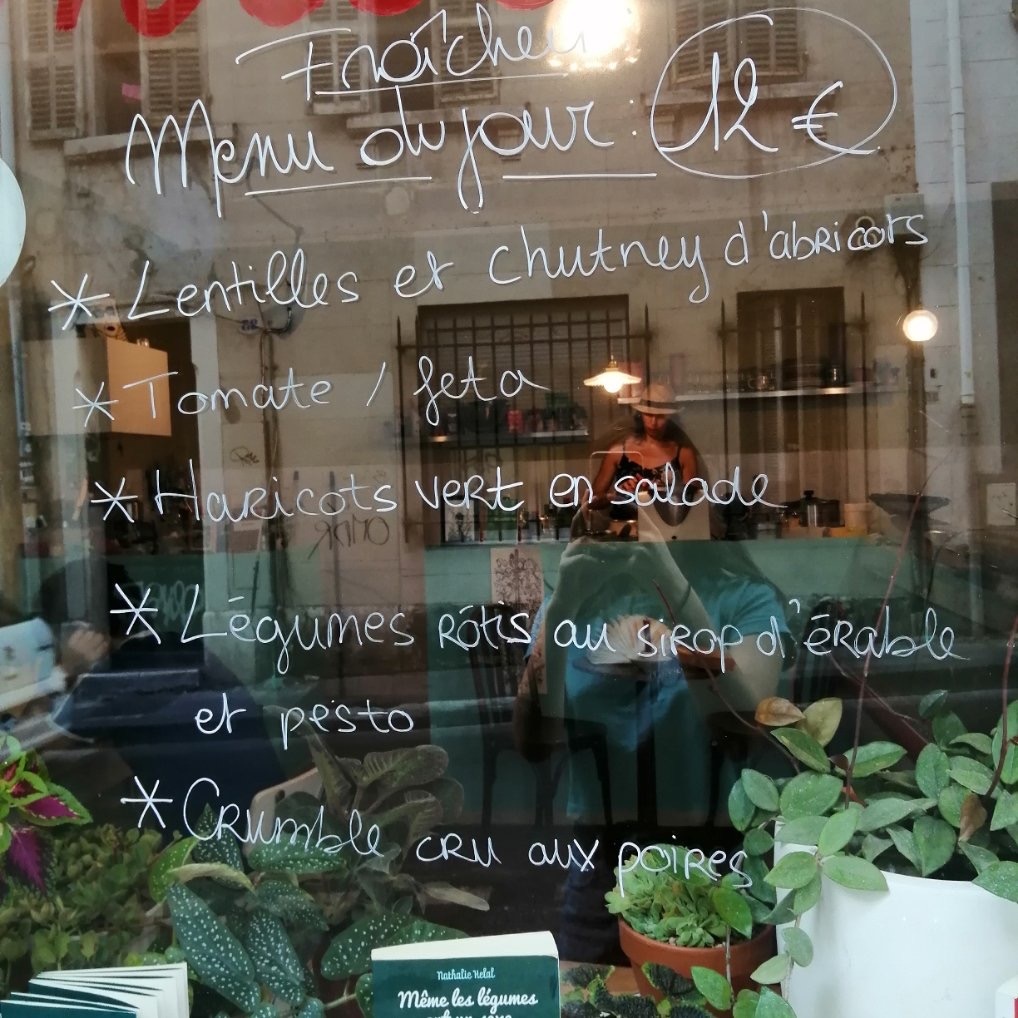 Fraîcheur
Menu du jour : 12 €
* Lentilles et chutney d'abricots
* Tomate / feta
* Haricots vert en salade
* Légumes rôtis au sirop d'érable
et pesto
* Crumble cru aux poires
Nathalie Helal
Même les légumes